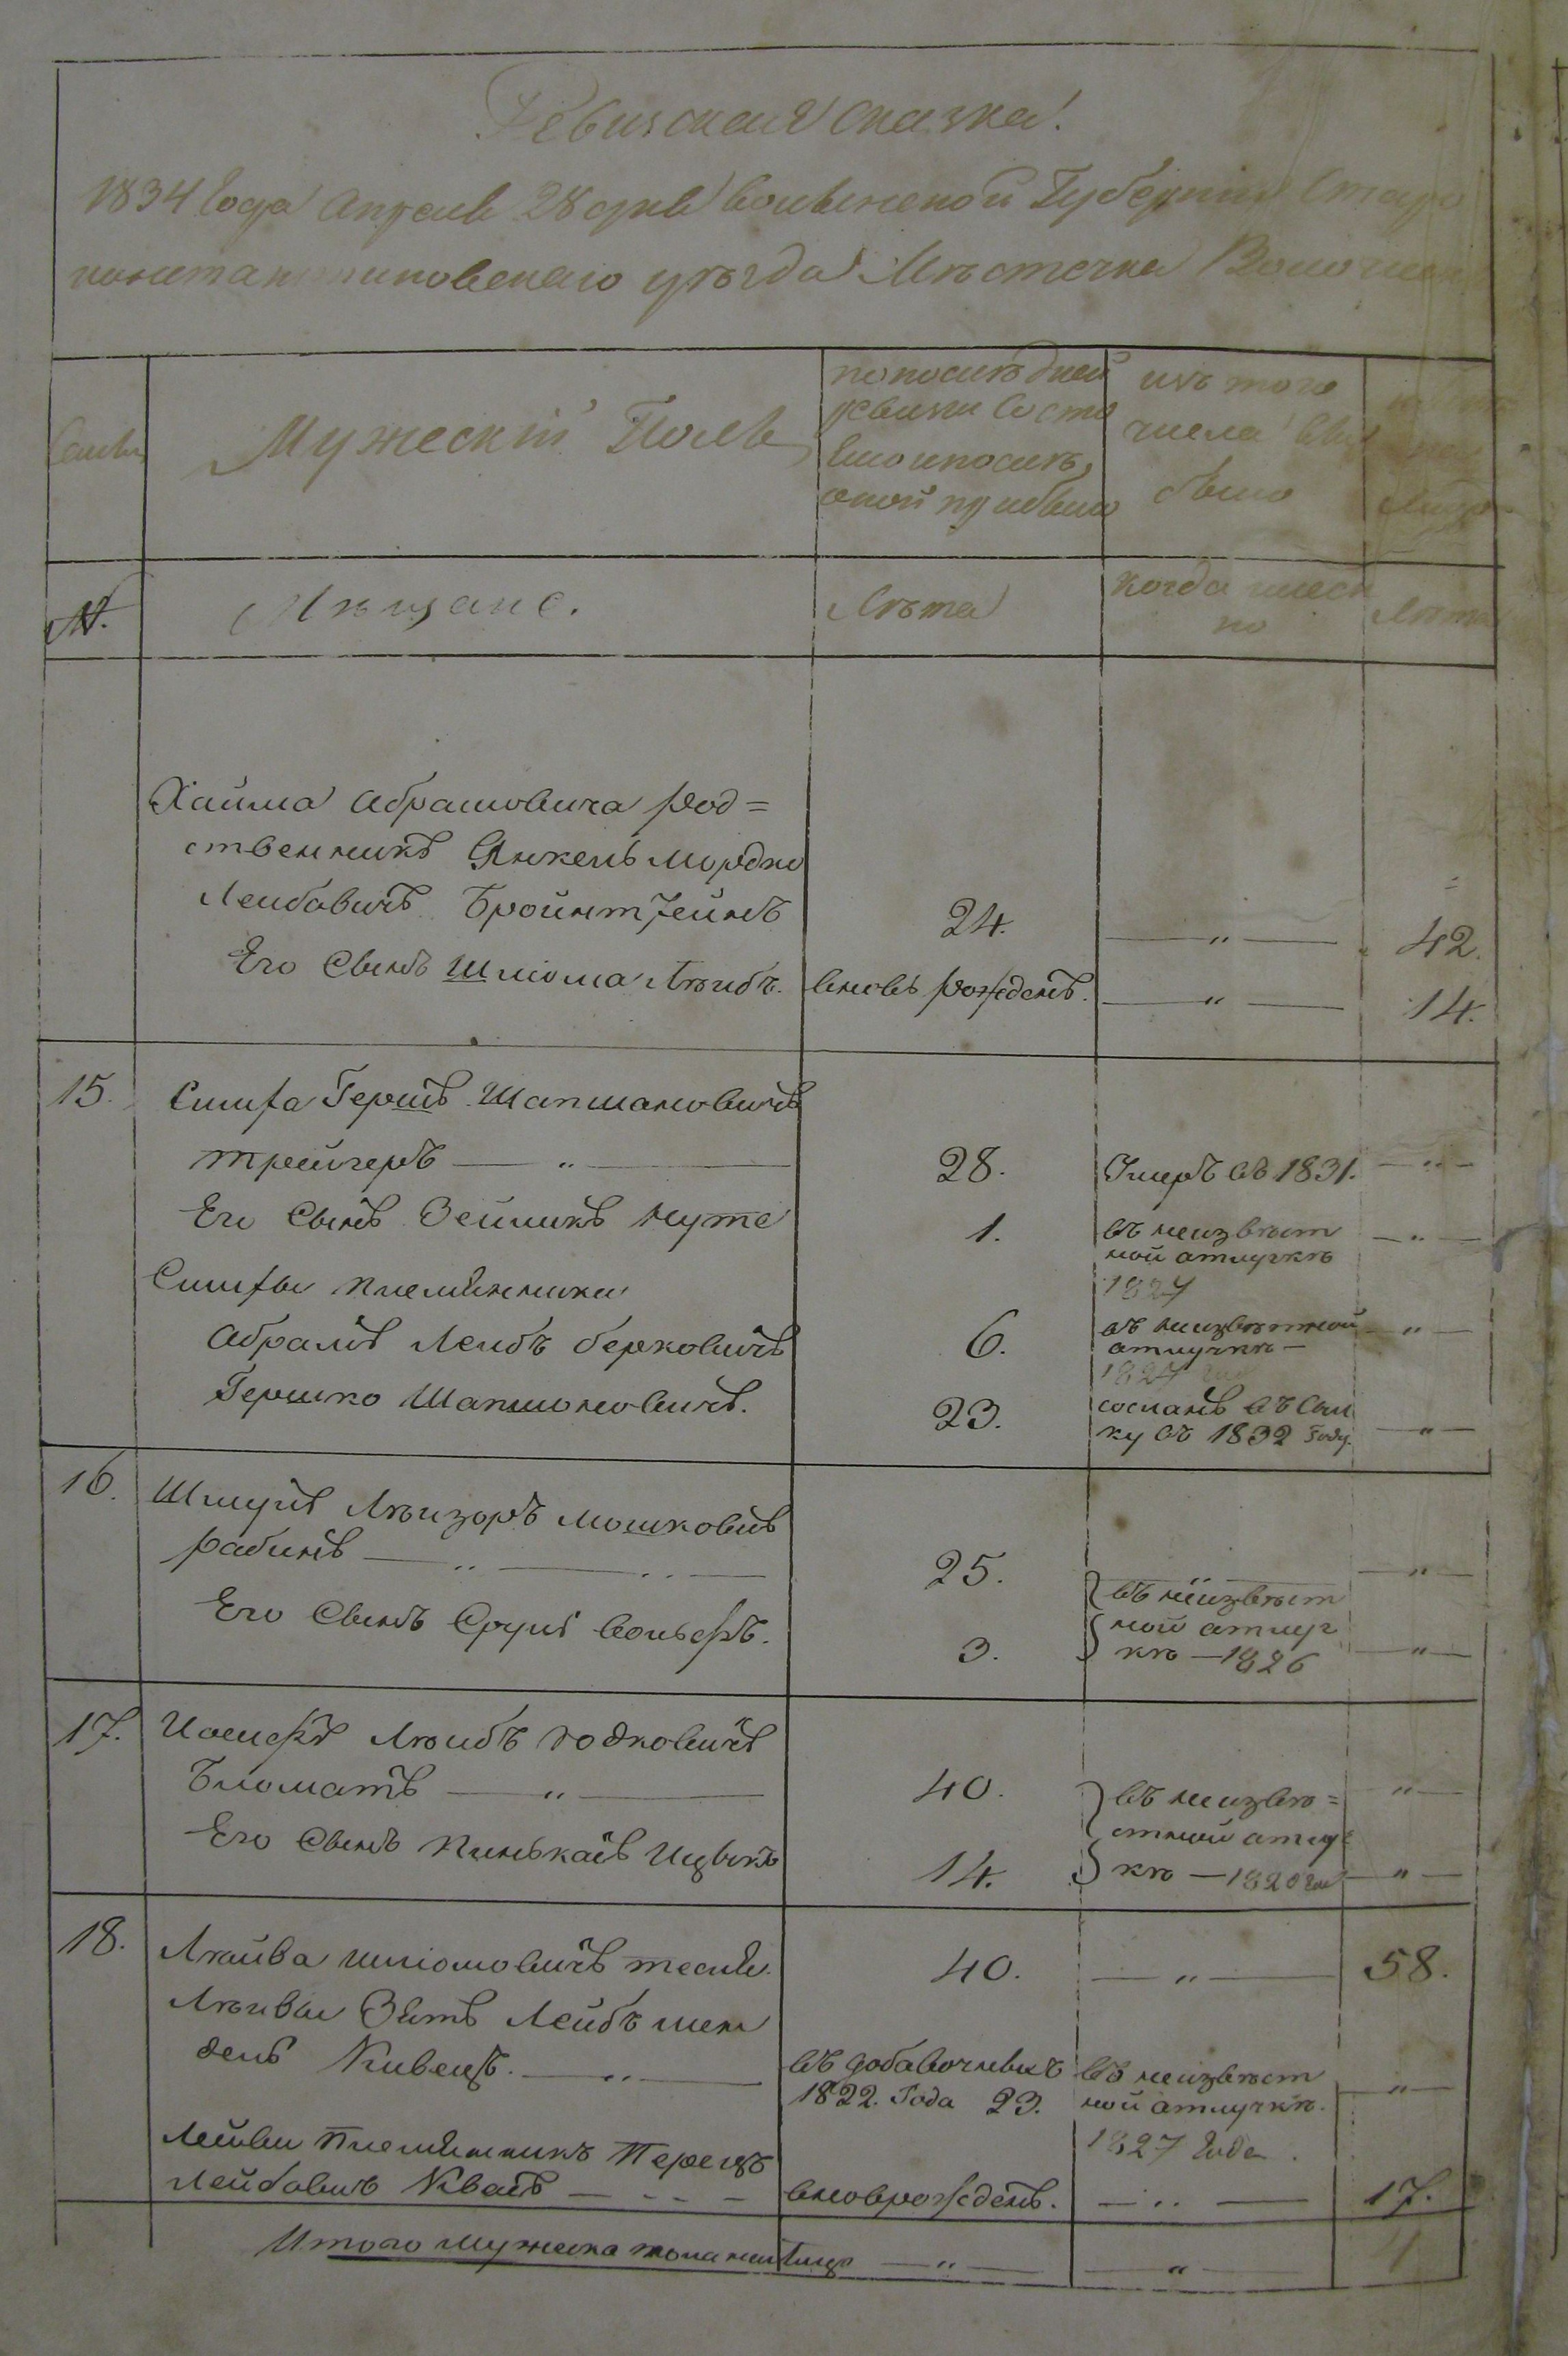 Ревизская Сказка!
1834 Года Апреля 28 дня Волынской Губерніи Старо
константиновскаго уѣзда Мѣстечка
Мужескій Полъ
по послѣдней
ревизіи Состо
яло и послѣ
оной прибыло
изъ того
числа вы
было
№.
Мѣщане.
Лѣта
когда имен
но
Лѣта
Хаима Абрамовича род=
ственникъ Янкель Мордко
Леибовичъ Бройнтгеймъ 24. — „ — 42.
Его Сынъ Шліома Лѣибъ. вновь рожденъ. — „ — 14.
15. Симха Гершъ Шапшановичъ
Трейгеръ — „ — 28. Умеръ въ 1831. — „ —
Его Сынъ Зеиликъ Нуте 1. въ неизвѣст — „ —
ной атлучкѣ
1827
Симхы племянники
Абрамъ Леибъ Берковичъ 6. въ неизвѣстной — „ —
атлучкѣ —
1827
Гершко Шапшоновичъ. 23. сосланъ въ Ссыл
ку въ 1832 Году. — „ —
16. Шмуль Лѣизоръ Мошковичъ
Рабинъ — „ — „ — 25. — „ —
въ неизвѣст
ной атлуч
кѣ — 1826
Его Сынъ Сруль Вольфъ. 3. — „ —
17. Иосифъ Лѣибъ
Блюматъ — „ — 40. въ неизвѣ= „ —
стной атлуч
кѣ — 1820
Его Сынъ Пинькасъ Ицыкъ 14. — „ —
18. Лѣйва Шліомовичъ 40. — „ — 58.
Лѣивы Зять Леибъ Мен
дель Кивецъ. — „ — въ добавочныхъ въ неизвѣст — „ —
1822. Года 23. ной атлучкѣ.
1827 Года.
Леивы Племянникъ Перецъ
Лейбовичъ Квасъ — - - — вновьрожденъ. — „ — 17.
Итого мужеска пола налицо — „ — — „ — 4